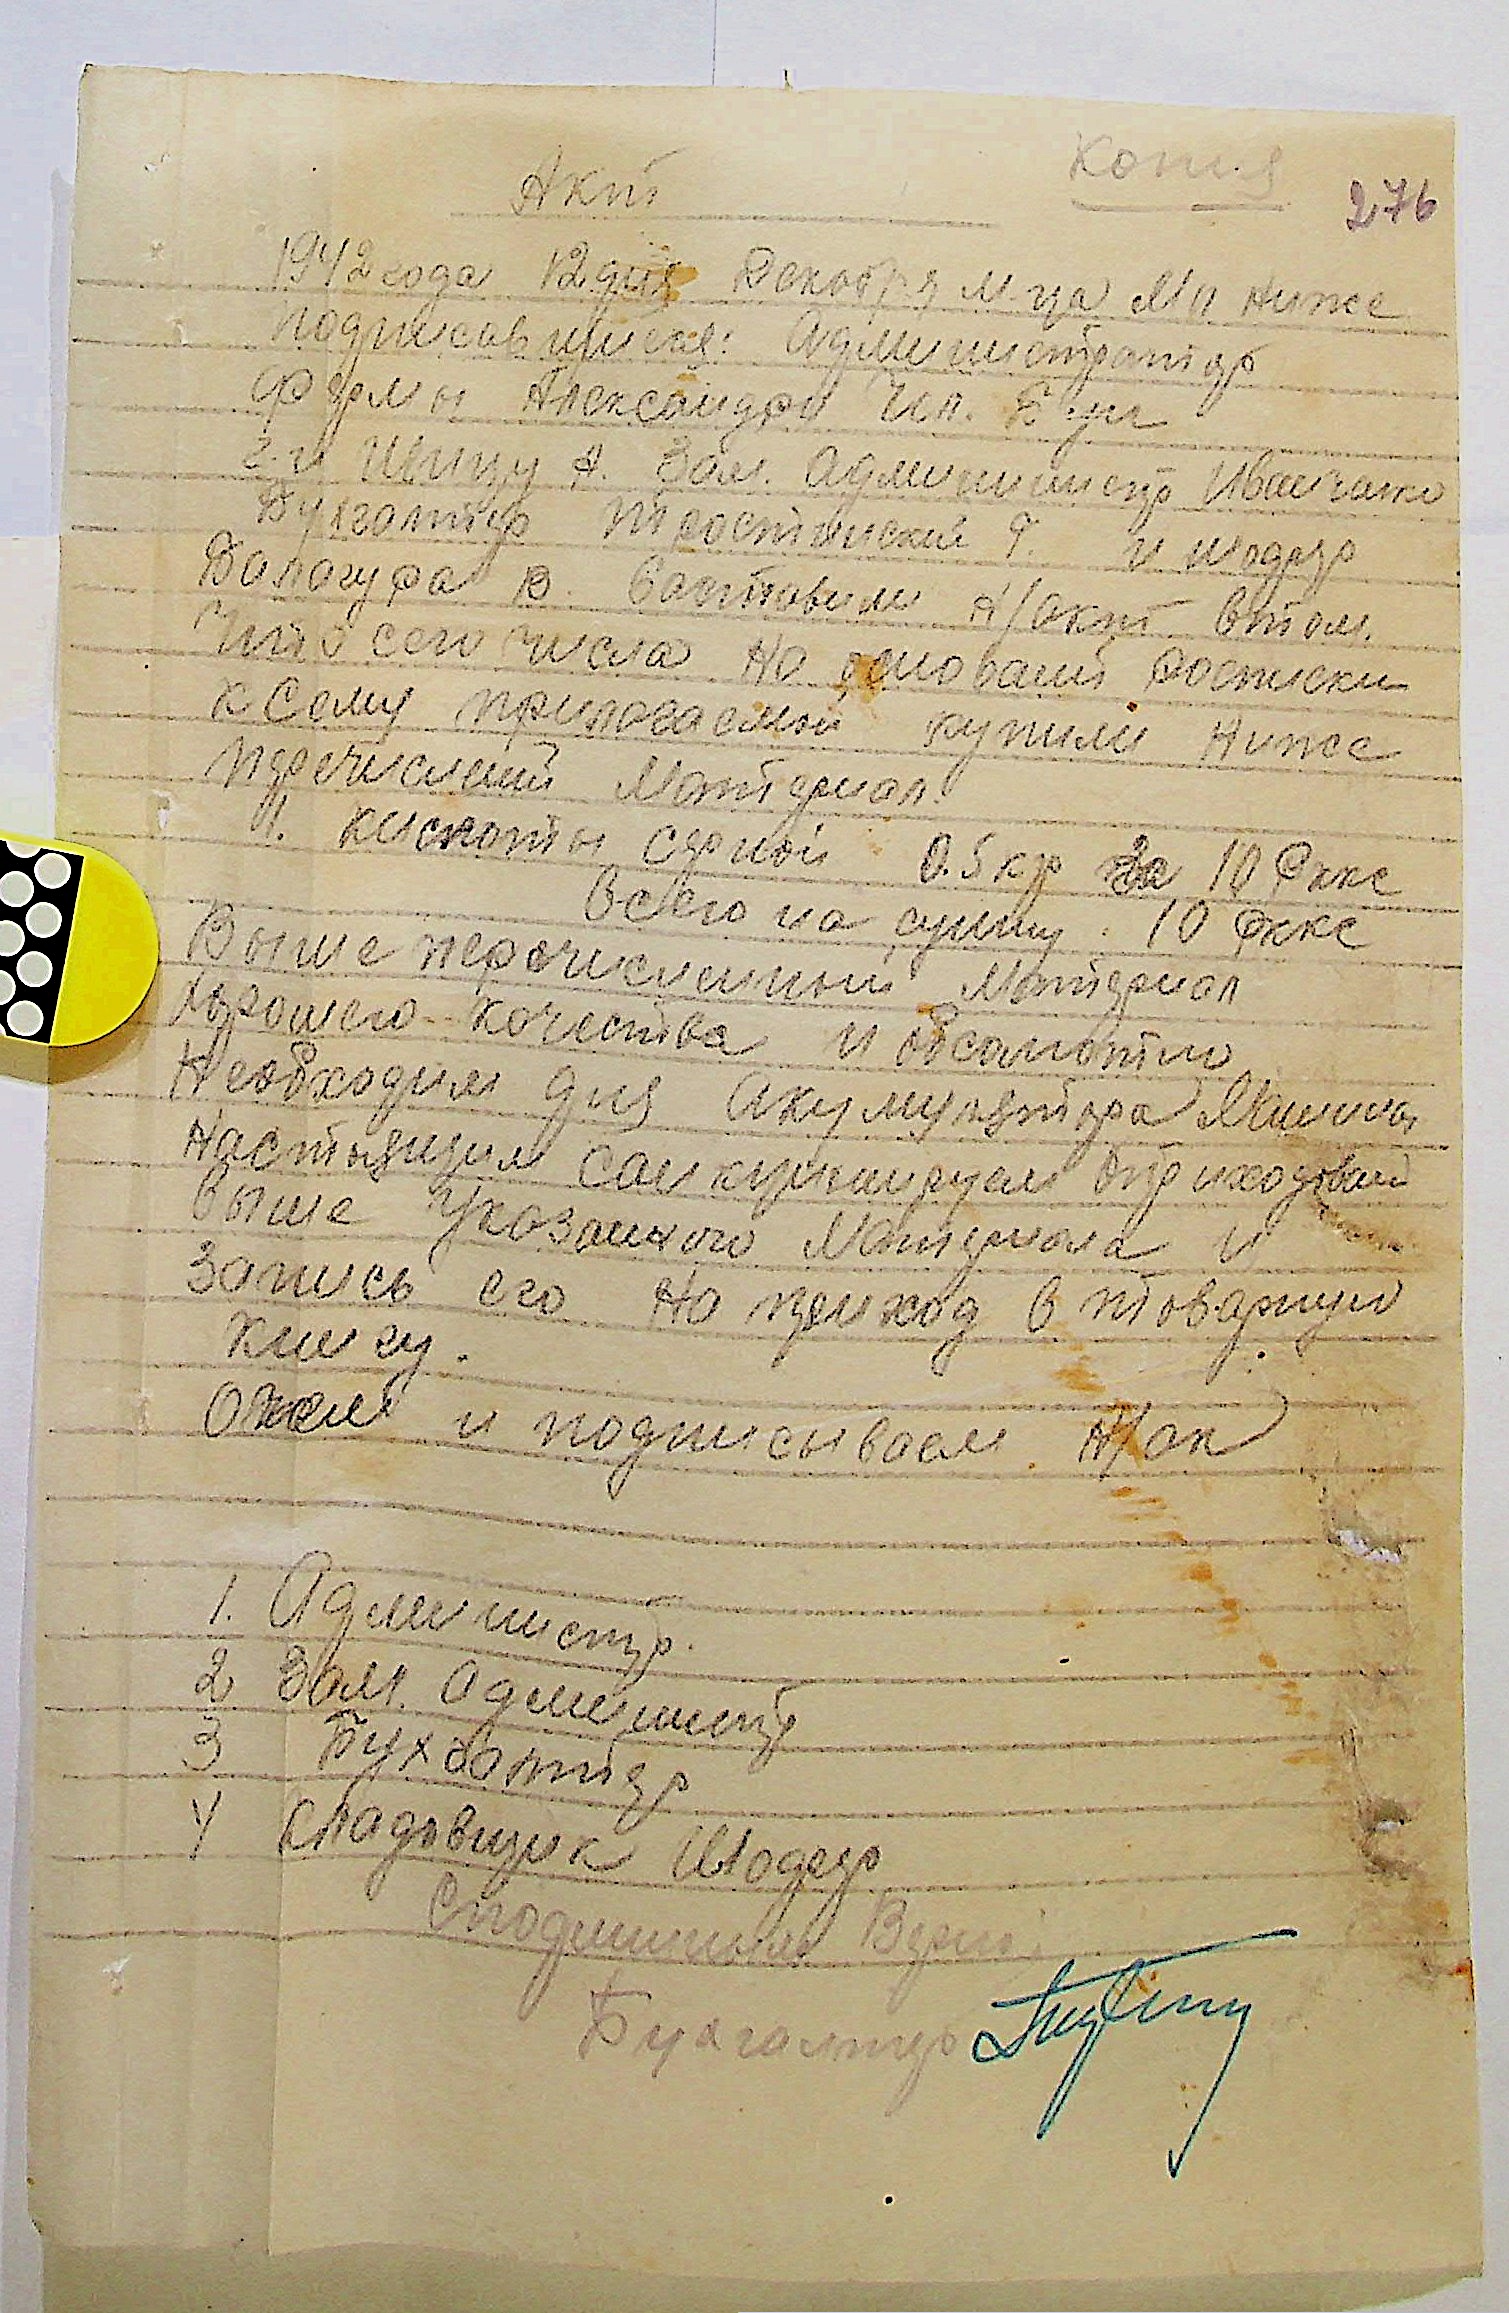 Копия
276
Акт
1942 года 12 дня Декабря м-ца Мы ниже
подписавшиеся: Администратор
Фермы Александра Чел. Буг
г-н А. Зам. Администр Иванченко
Бухгалтер Тростянский Г. и шофер
Балагура В. Составили н/акт втом.
Что сего числа на основаий росписки
к Сему прилогаемой купили ниже
перечисленый Материал.
1. кислоты серной 0.5 кгр за 10 Рккс
Всего на сумму. 10 Рккс
Выше перечисленный Материал
хорошего качества и обсолютно
Необходим для Акумулятора Машины
Настоящим Оприходований
Выше указанного Материала и
Запись его на приход в товарную
книгу.
О чем и подписываем н/ак
1. Администр.
2 Зам. Админист
3 Бухгалтер
4 Кладовщик Шофер
С подлинным Верно
Бухгалтер